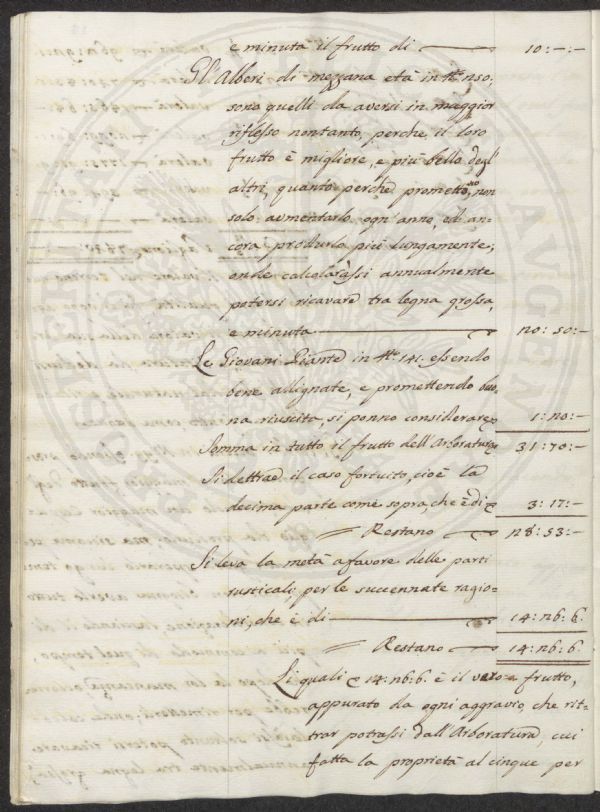 e minuta il frutto di — 10:-:-
Gl'Alberi di mezzana età in N.° 250,
sono quelli da aversi in maggior
riflesso non tanto, perche il loro
frutto è migliore, e più bello degl'
altri, quanto perche promettono non
solo aumentarlo ogn'anno, ed an-
cora produrlo più lungamente;
onde calcolarassi annualmente
potersi ricavare tra legna grossa,
e minuta — 20:50:-
Le Giovani Piante in N.° 141. essendo
bene allignate, e promettendo buo-
na riuscita, si ponno considerare 1:20:-
Somma in tutto il frutto dell'Arboratura 31:70:-
Si dettrae il caso fortuito, cioè la
decima parte come sopra, che è di 3:17:-
= Restano — 28:53:-
Si leva la metà a favore delle parti
rusticali, per le succennate ragio-
ni, che è di — 14:26:6.
= Restano — 14:26:6.
Li quali 14:26:6. è il vero frutto,
appurato da ogni aggravio, che rit-
trar potrassi dall'Arboratura, cui
fatta la proprietà al cinque per